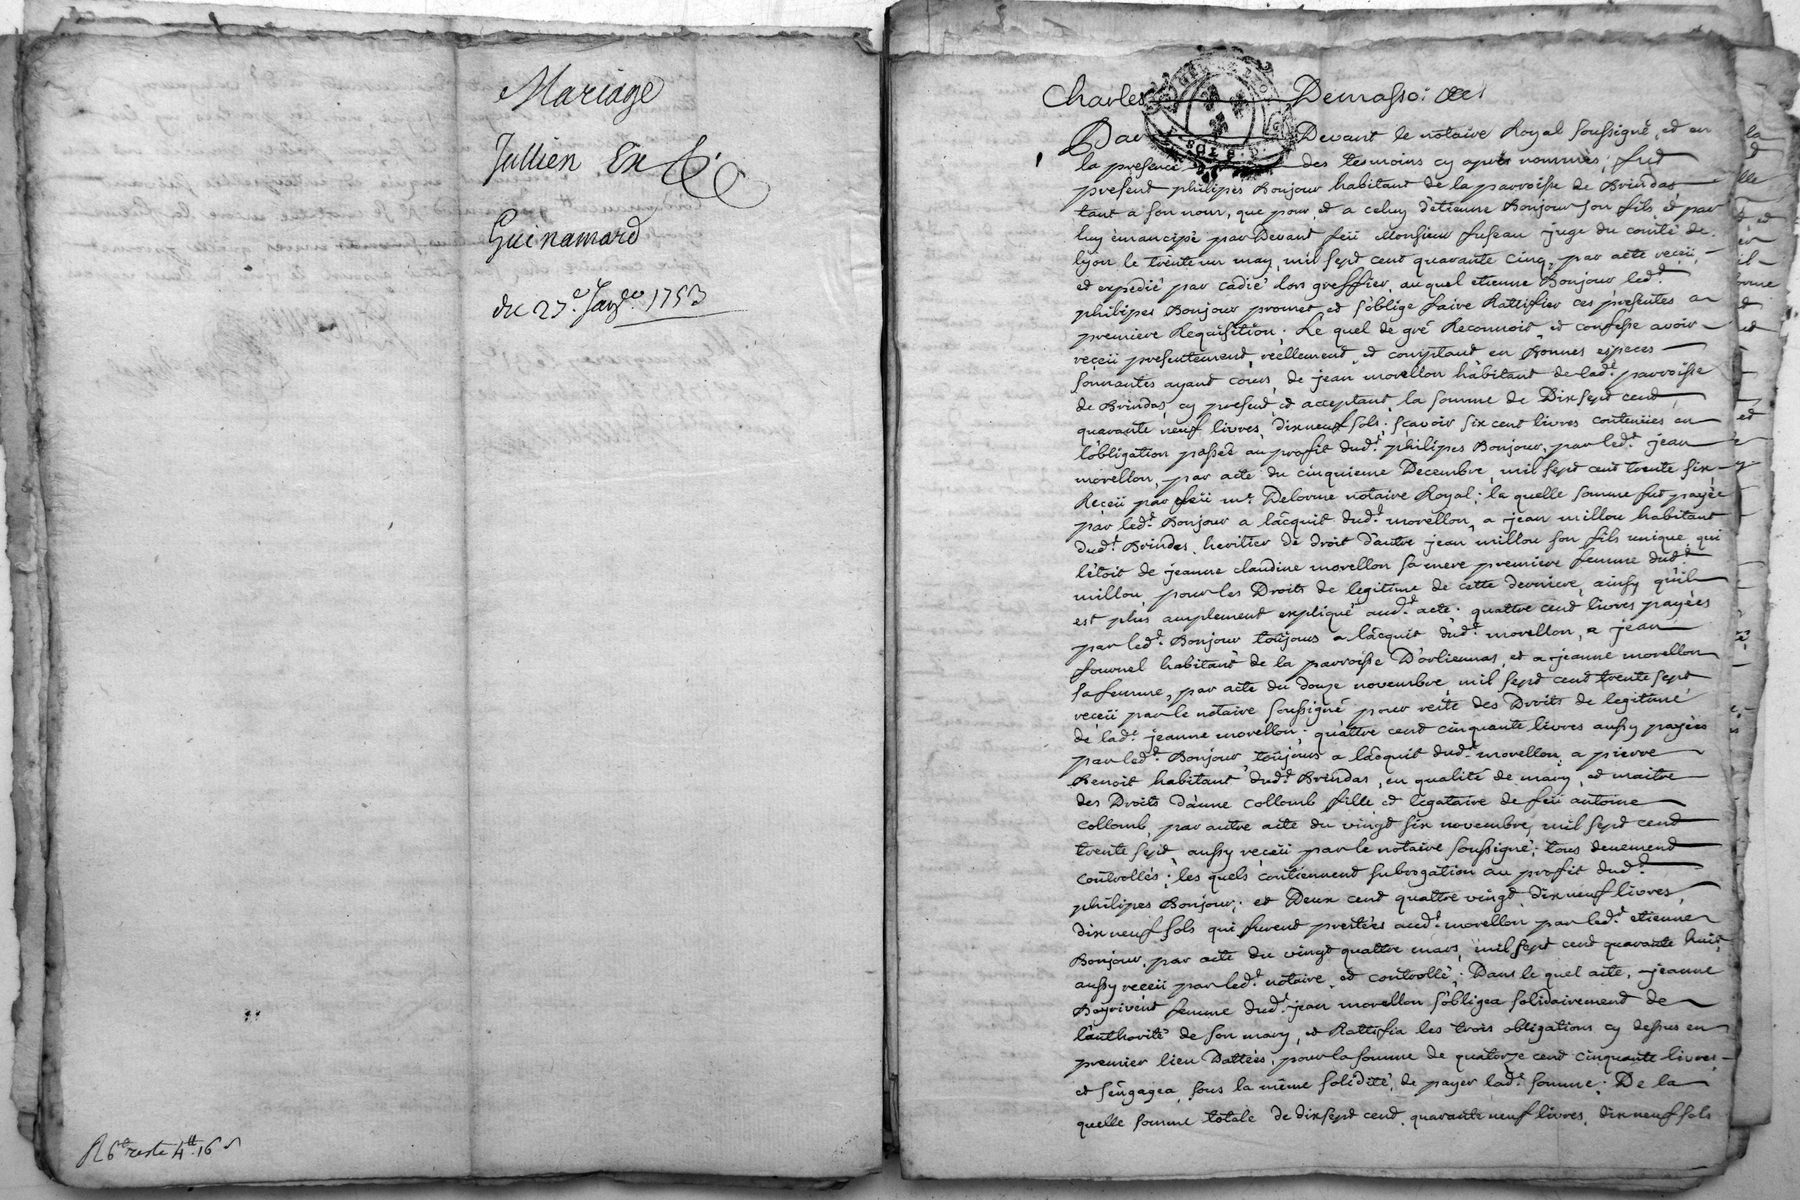 Mariage
Jullien Et
Guinamard
du 23e Janv. 1753
R 6tt reste 4tt 16 s
Charles Demasso
Par Devant le notaire Royal soussigné, et en
la presence des tesmoins cy après nommés; fut
present philipes Bonjour habitant de la parroisse de Brindas
tant a son nom, que pour, et a celuy d'etienne Bonjour son fils, et par
luy émancipé par Devant feü Monsieur fuseau juge du comté de
lyon le trente un may, mil sept cent quarante cinq, par acte receü,
et expedié par cadié lors greffier, auquel etienne Bonjour led.t
philipes Bonjour promet et s'oblige faire Rattifier ces présentes a
premiere Requisition; Le quel de gré Reconnoit et confesse avoir
reçeü presentement, réellement, et comptant en Bonnes especes
sonnantes ayant cours, de jean morellon habitant de lad.t parroisse
de Brindas, cy present et acceptant, la somme de Dix sept cent
quarante neuf livres, dix neuf sols; sçavoir six cent livres contenües en
l'obligation passée au profit dud.t philipes Bonjour, par led.t jean
morellon, par acte du cinquieme Decembre, mil sept cent trente six
Receü par feü m.e Delorme notaire Royal; la quelle somme fut payée
par led.t Bonjour a l'acquit dud.t morellon, a jean millou habitant
dud.t Brindas, heritier de droit d'autre jean millou son fils unique, qui
l'étoit de jeanne claudine morellon sa mere premiere femme dud.t
millou, pour les Droits de legitime de cette derniere, ainsy qu'il
est plus amplement expliqué aud.t acte; quattre cent livres payées
par led.t Bonjour toujours a l'acquit dud.t morellon, a jean
fournel habitant de la parroisse D'orliennas, et a jeanne morellon
sa femme, par acte du douze novembre, mil sept cent trente sept
receü par le notaire soussigné pour reste des Droits de legitime
de lad.t jeanne morellon; quattre cent cinquante livres aussy payées
par led.t Bonjour toujours a l'acquit dud.t morellon, a pierre
Benoit habitant dud.t Brindas, en qualité de mary, et maitre
des Droits d'anne collomb fille et legataire de feü antoine
collomb, par autre acte du vingt six novembre, mil sept cent
trente sept, aussy receü par le notaire soussigné; tous deuement
controllés; les quels contiennent subrogation au profit dud.t
philipes Bonjour; et Deux cent quattre vingt, dix neuf livres,
dix neuf sols qui furent prettées aud.t morellon par led.t etienne
Bonjour, par acte du vingt quattre mars, mil sept cent quarante huit,
aussy receü par led.t notaire, et controllé; Dans le quel acte, jeanne
Bayrivent femme dud.t jean morellon s'obligea solidairement de
l'authorité de son mary, et Rattifia les trois obligations cy dessus en
premier lieu Dattées, pour la somme de quatorze cent cinquante livres,
et s'engagea, sous la même solidité, de payer lad.t somme; De la
quelle somme totale de dix sept cent, quarante neuf livres, dix neuf sols